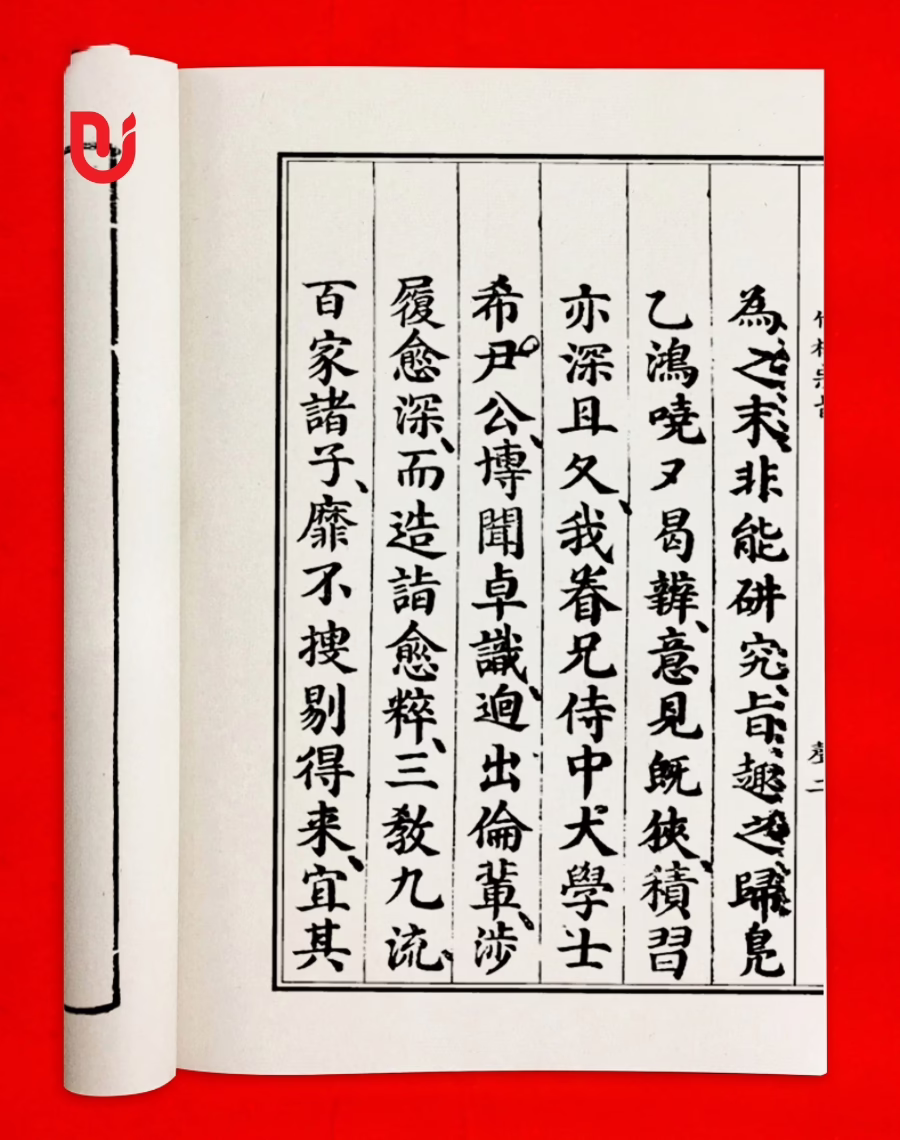 為之末非能硏究旨趣之歸鳧
乙鴻嘵又曷辨、意見既狹、積習
亦深且久、我眷兄侍中大學士
希尹公、博聞卓識、逈出倫輩、涉
履愈深、而造詣愈粹、三教九流、
百家諸子、靡不搜剔得来、宜其